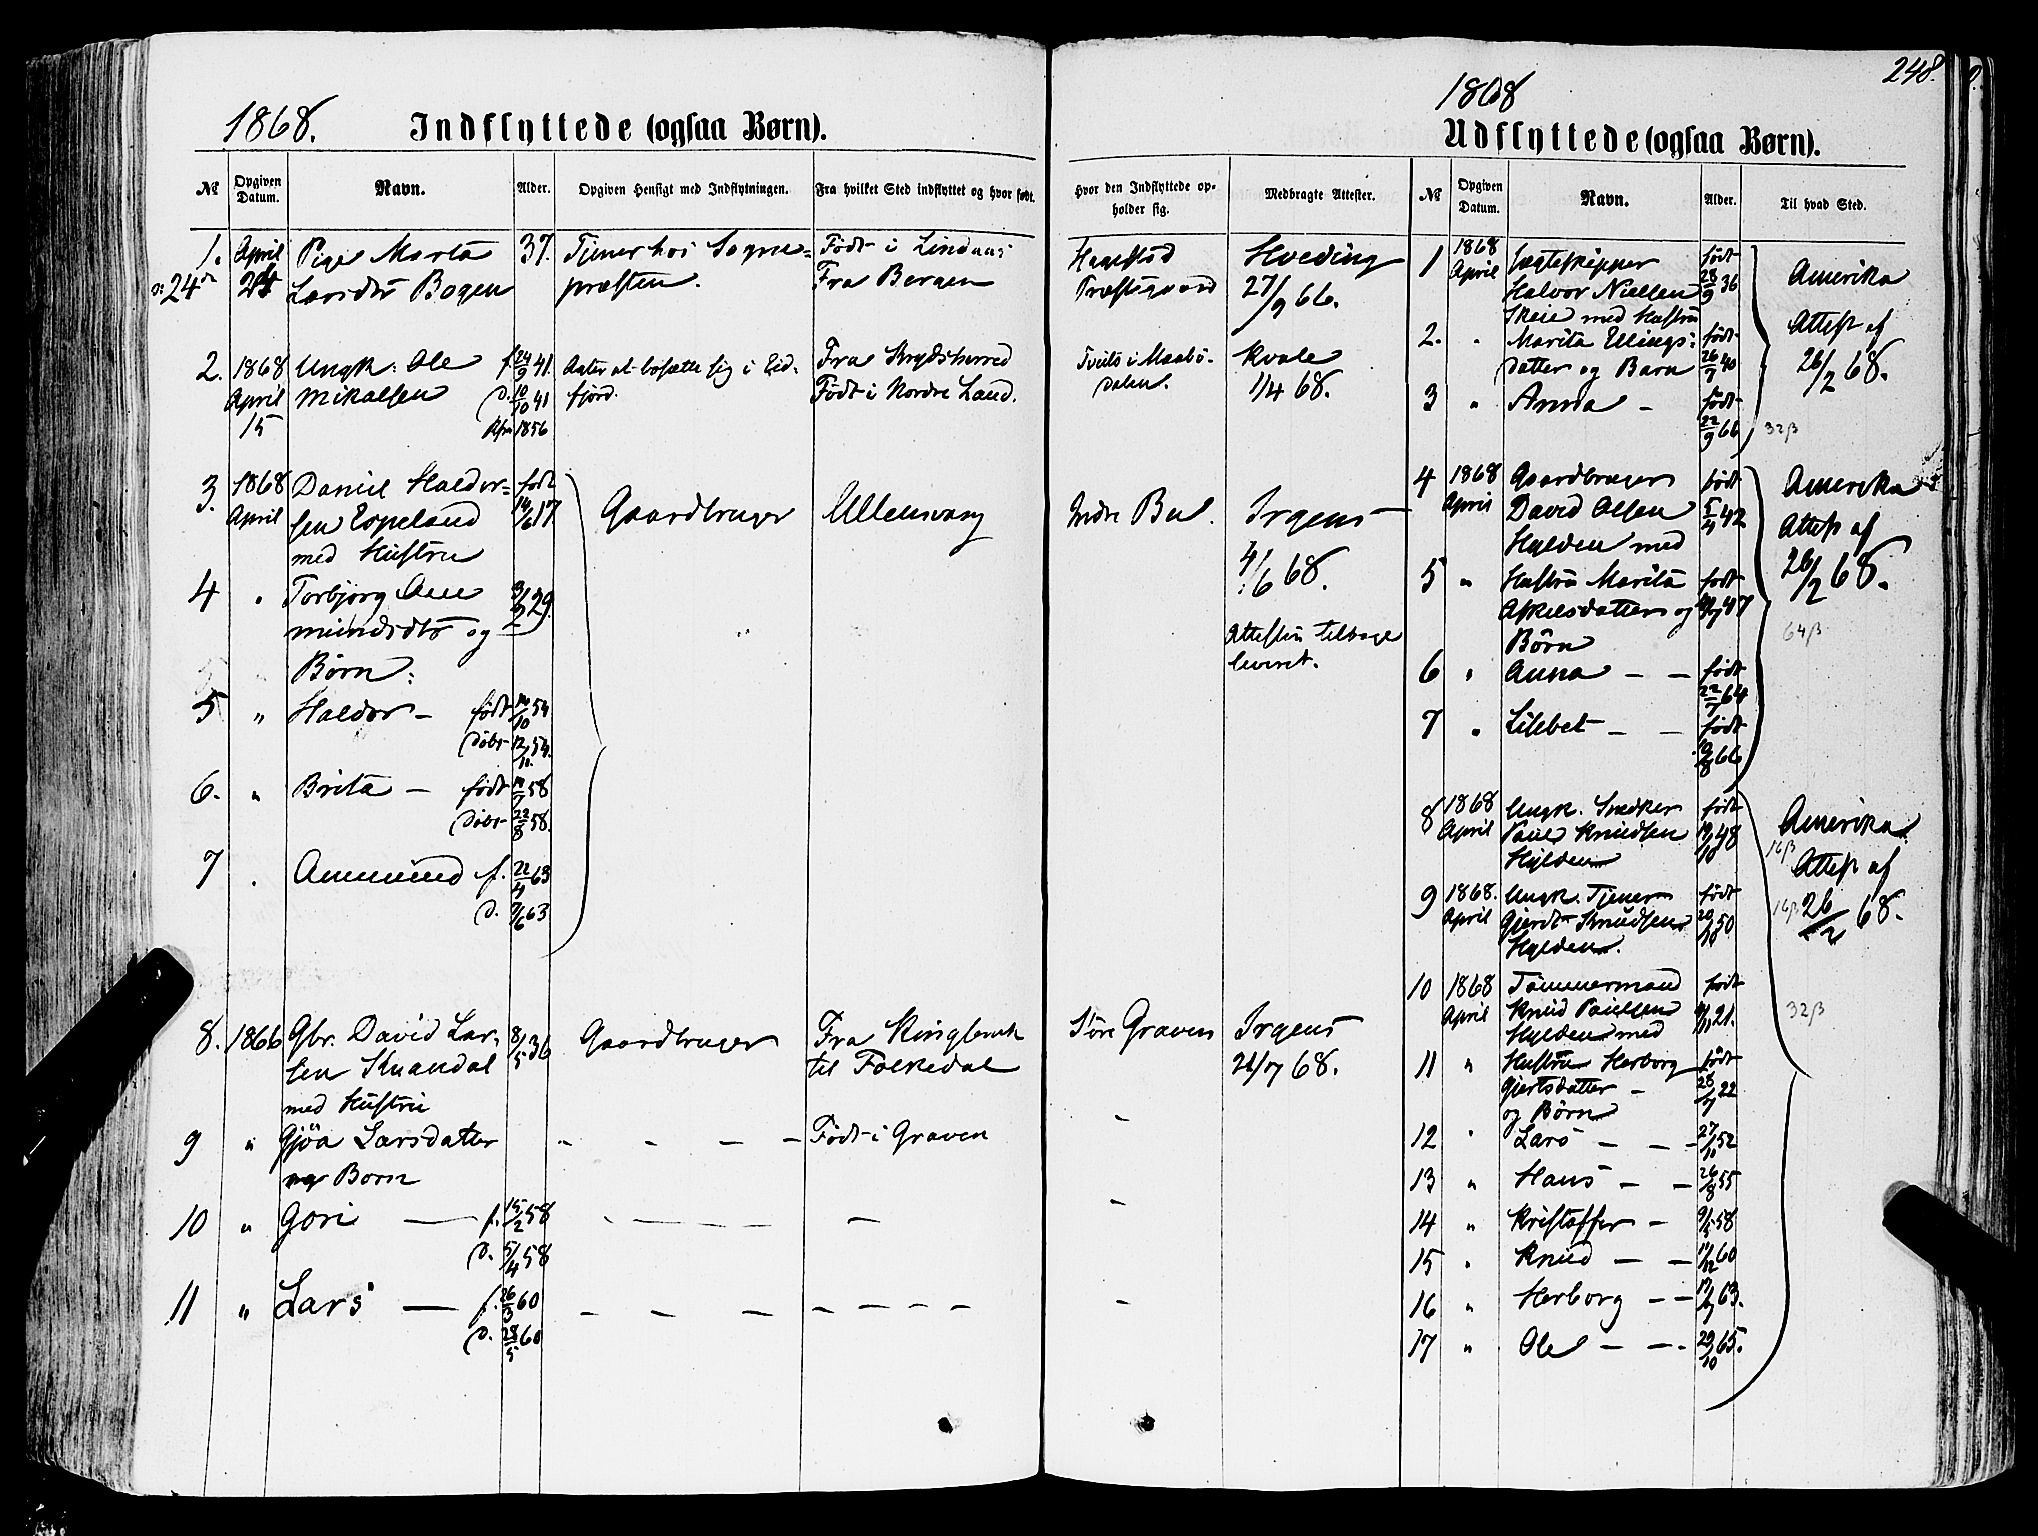 248.
1868.
Indflyttede (ogsaa Børn).
№
Opgiven Datum.
Navn.
Alder.
Opgiven Hensigt med Indflytningen.
Fra hvilket Sted indflyttet og hvor født.
Hvor den Indflyttede opholder sig.
Medbragte Attester.
1. April Pige Marta 37. Tjener hos Sogne- Født i Lindaas Hveding
24 Larsdtr Bogen præsten. Fra Bergen Præstegaard 27/9 66.
2. 1868 Ungk: Ole f. 24/9 41. Agter at bosætte sig i Eid- Fra Krydsherred Tveito i Maabö- Kvale
April Mikalsen d. 10/10 41 fjord. Født i Nordre Land. dalen. 1/4 68.
15 1856
3. 1868 Daniel Haldor- født Gaardbruger Ullensvang Indre Bu. Irgens
April sen Espeland 14/6 17
med Hustru 4/6 68.
4 Torbjørg Am 29.
mundsdtr og Attesten tilbage
Børn: leveret.
5 " Haldor - født 54
døbt 54.
6. " Brita - født 58
døbt 22/8 58.
7 Ammund f. 22/4 63
d. 7/6 63
8. 1866 Gbr. David Lar- 8/5 36 Gaardbruger Fra Kinglervik Søre Graven Irgens
sen Kvandal til Folkedal 21/7 68.
med Hustru
9 " Gjöa Larsdatter " - - - Født i Graven -
og Børn
10 " Gori - f. 15/2 58 - - - - -
d. 5/4 58
11 " Lars - f. 26/3 60 - - - - - - - -
d. 28/5 60
1868
Udflyttede (ogsaa Børn).
№
Opgiven Datum.
Navn.
Alder.
Til hvad Sted.
1 1868 født Amerika
April Halvor Nielsen 28/9 36
Skeie med Hustru Attest af
2. " Marita Ellings- født 26/2 68.
datter og Barn 26/7 40
3 " Anna - født
22/9 66 32β
4 1868 Gaardbruger født Amerika
April David Olsen 5/4 42 Attest af
Hylden med 26/2 68.
5 " Hustru Marita født
Askelsdatter og 47
Børn 64β
6 " Anna - - født
22/7 64
7 " Lisbet - - født
19/8 66
8 1868 Ungk. Snedker født Amerika
April Paul Knudsen 48 16β
Hylden Attest af
9 1868. Ungk. Tjener født 16β 26/2 68.
April Gjerdt Knudsen 50
Hylden.
10 1868 Tømmermand født
April Knud Paulsen 21. 32β
Hylden med
11 " Hustru Herborg født
Gjertsdatter - 22
og Børn
12 " Lars - - - 27/11 52
13 " Hans - - 26/8 55
14 " Kristoffer - 58
15 " Knud - - 60
16 " Herborg - - 63.
17 " Ole - - - 29/10 65.